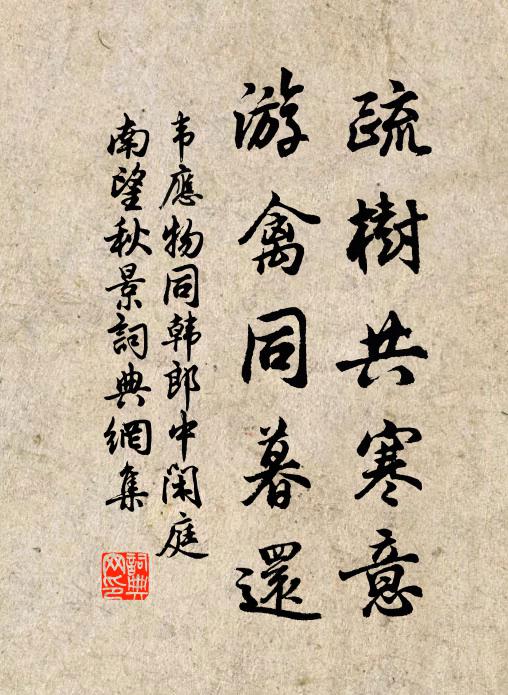 疏樹共寒意
游禽同暮還
韦應物同韩郎中閑庭
南望秋景詞典網集
詞典
网印